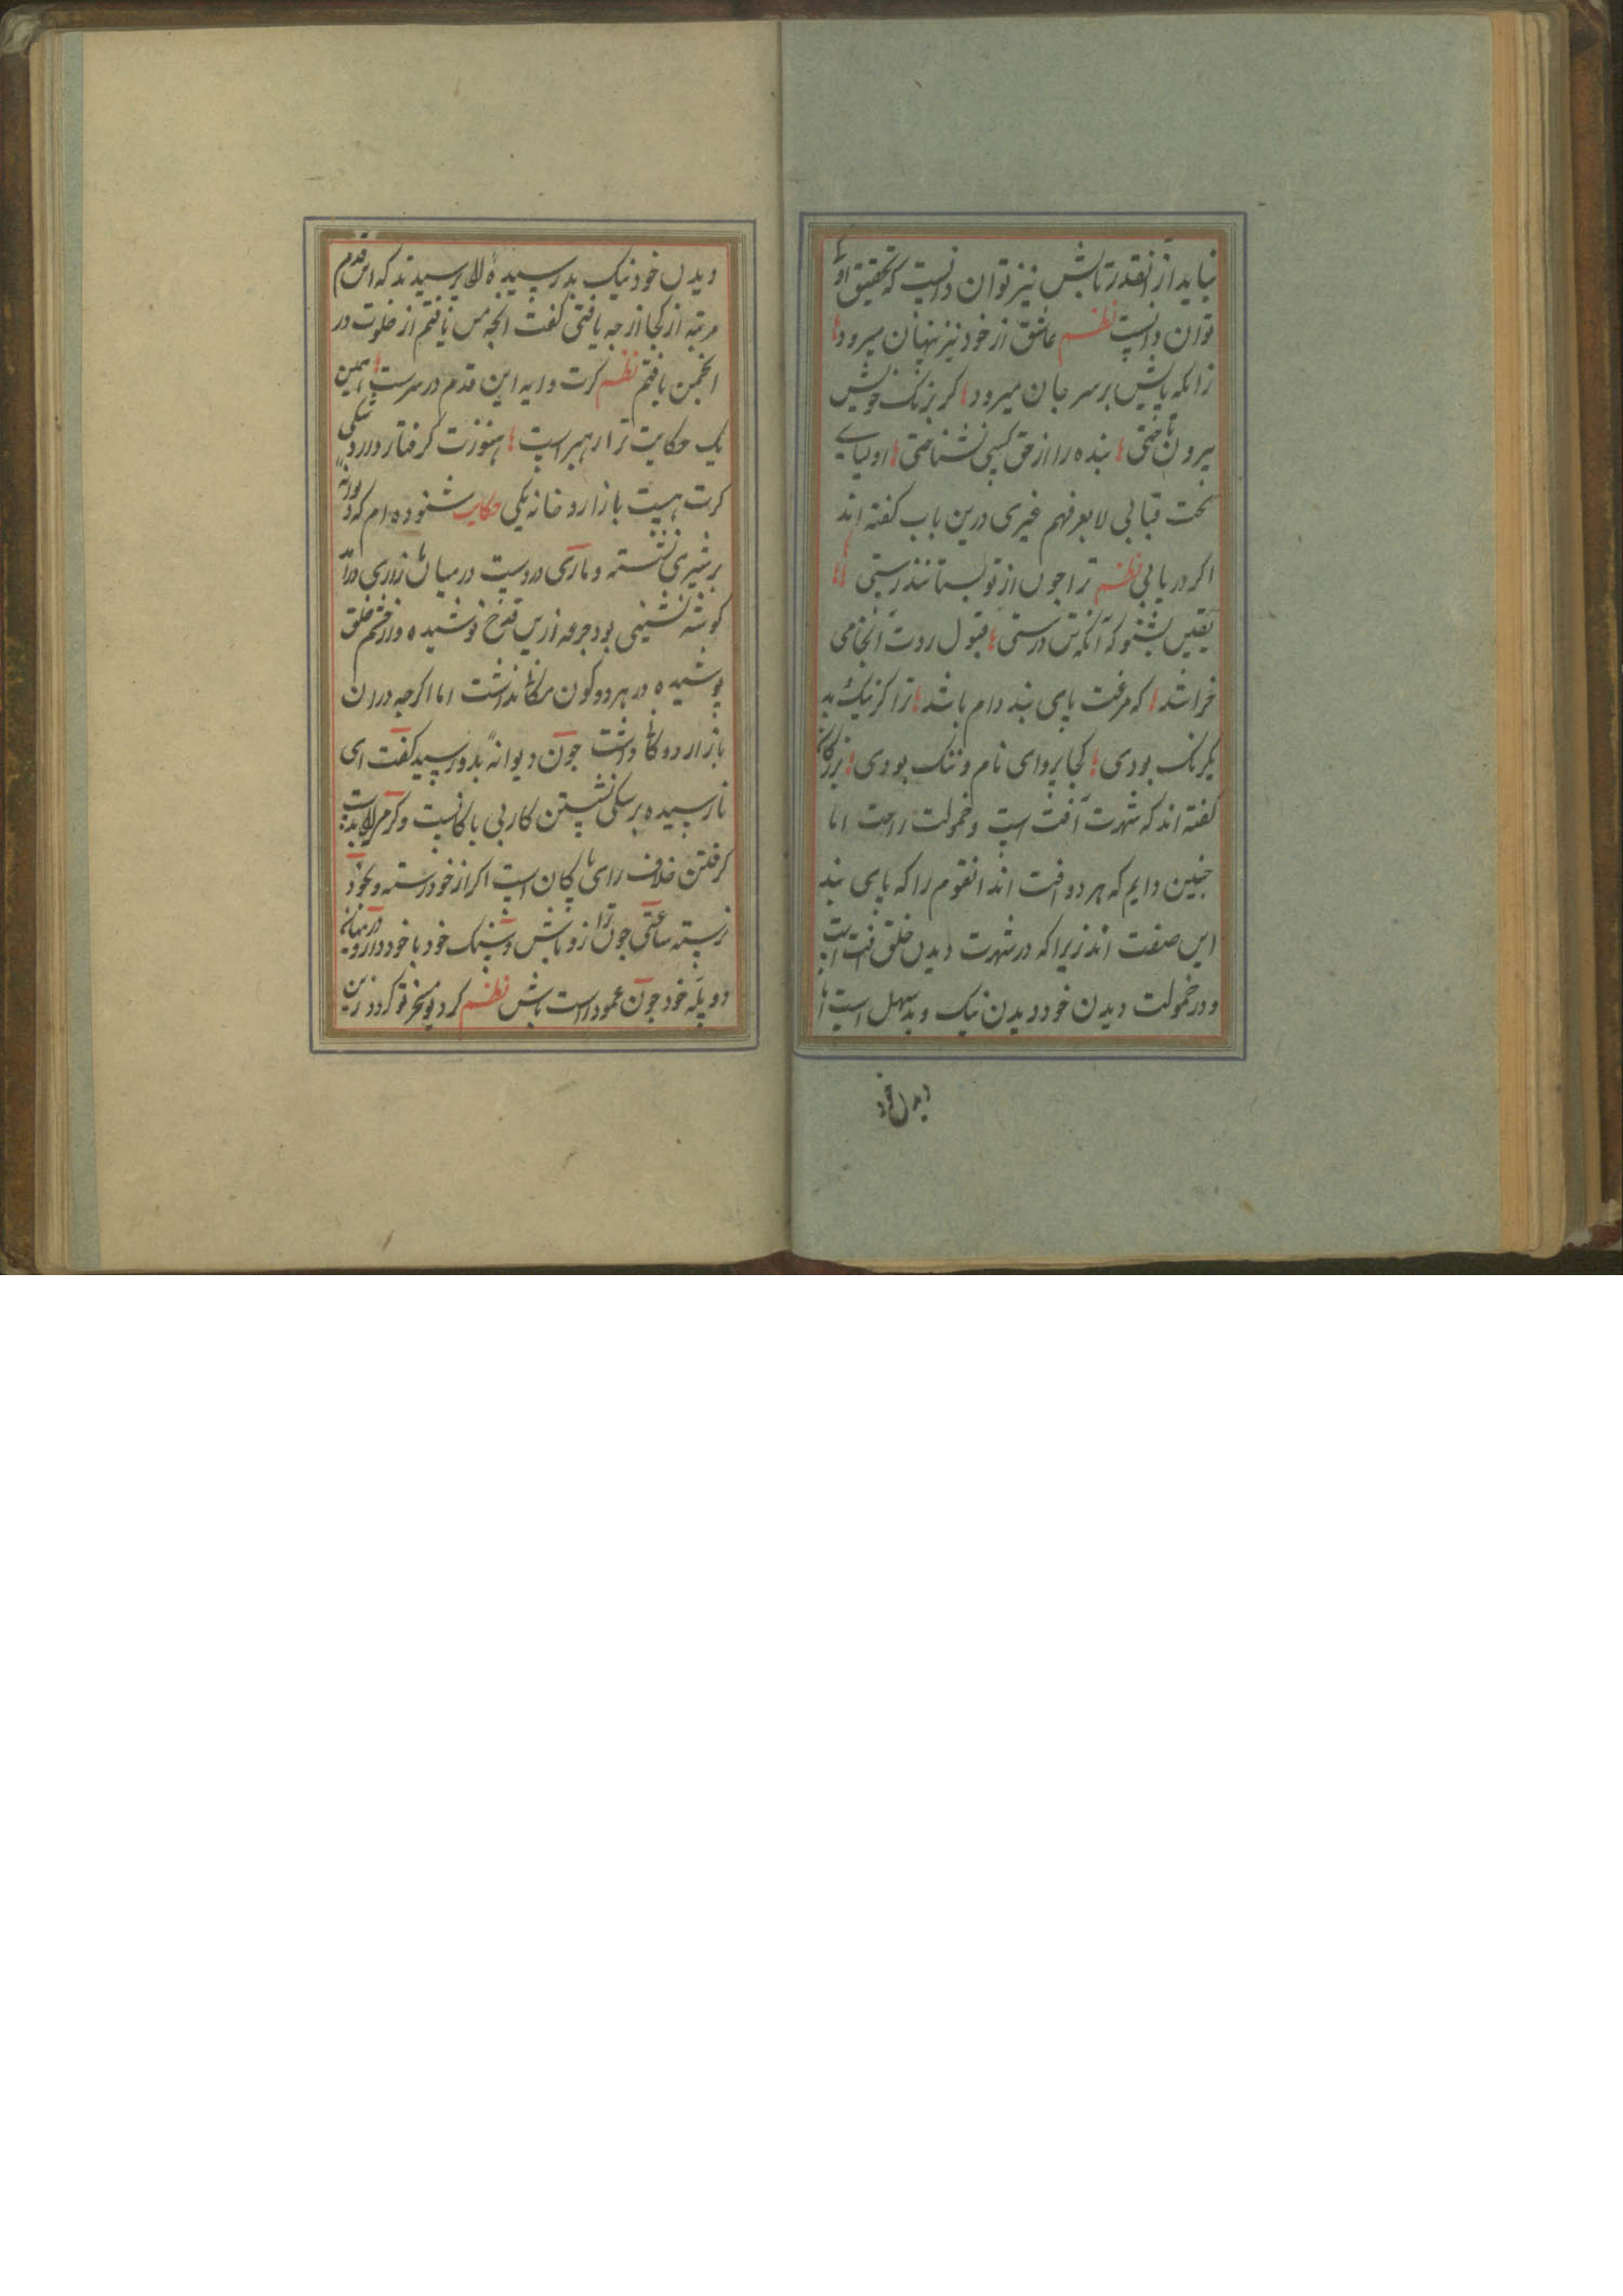 نیاید از آنقدر تابش نیز توان دانست که تحقیق او
توان دانست نظم عاشق از خود نیز پنهان میرود
زانکه پایش بر سر جان میرود کر برنک خویش
بیرون تاختی بنده را از حق کسی نشناختی اولیای
تحت قبابی لا یعرفهم غیری درین باب کفته اند
اکر دریابی نظم ترا چون از تو بستانند رستی
یقین بشنو که آنکه تن درستی قبول و ردت آنجا می
خراشد که معرفت پای بند دام باشد ترا کر نیک و بد
یکرنک بودی کجا پروای نام و ننک بودی بزرکان
کفته اند که شهرت آفت است و خمولت راحت اما
جنین دانم که هر دو آفت اند آنقوم را که پای بند
این صفت اند زیرا که در شهرت دیدن خلق آفت است
و در خمولت دیدن خود و دیدن نیک و بد سهل است اما
دیدن خود
دیدن خود نیک بد رسیدهٔ را پرسیدند که این قدم
مرتبه از کجا از جه یافتی کفت آنجه من یافتم از خلوت در
انجمن یافتم نظم کرت دایه این قدم در سرست همین
یک حکایت ترا رهبر است هنوزت کرفتار دارد شکی
کرت هست بازار و خانه یکی حکایت شنوده ام که دیوانهٔ
بر شیری نشسته و ماری در دست در میان بازاری درآمد
کوشه نشینی بود جرعه ازین قدح نوشیده و از چشم خلق
پوشیده در هر دو کون مکان نداشت اما اکرچه در آن
بازار دوکان داشت جون دیوانه بدو رسید کفت ای
نارسیده بر سکی نشستن کار بی باکانست و کرمی را بدست
کرفتن خلاف رای پاکان است اکر از خود رسته و بخود
نرسته ساعتی جون ترازو باش و سنک خود با خود دار و در میانه
دو پله خود جون عمود راست باش نظم کر دیو مسخر تو کردد